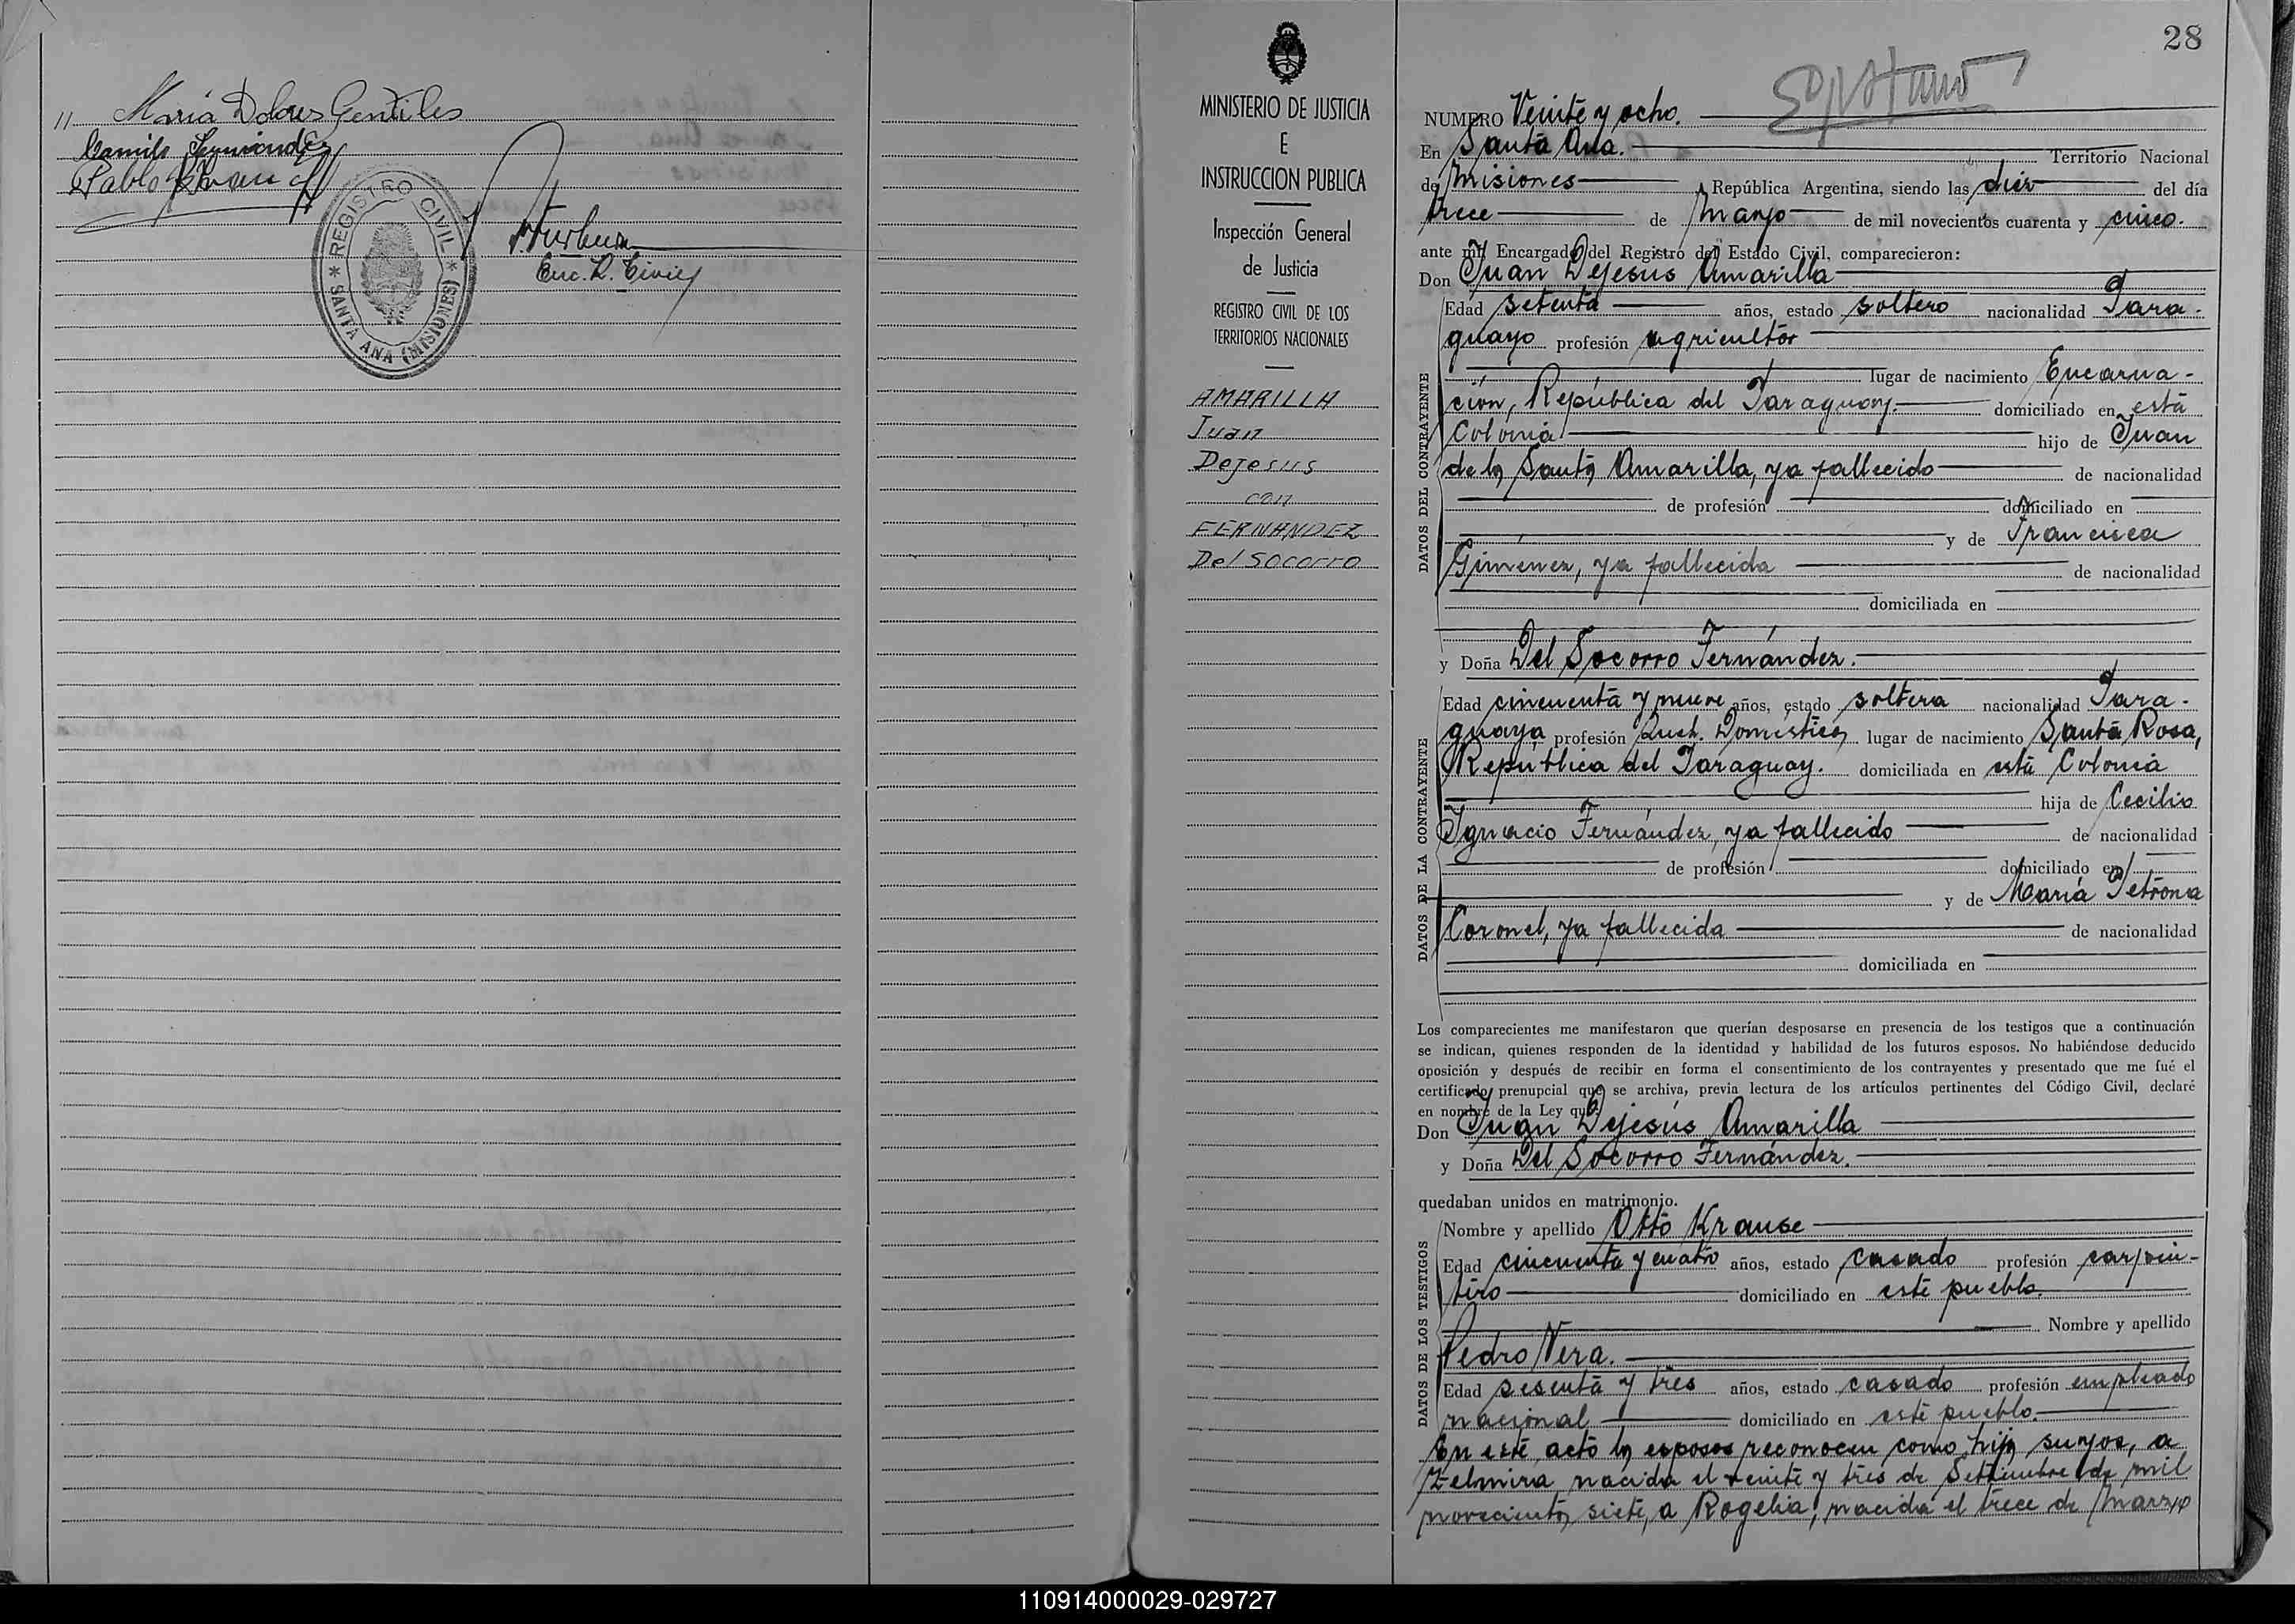 María Dolores Gentiles
Camilo Fernández
Pablo
REGISTRO CIVIL
* SANTA ANA (MISIONES) *
Enc. R. Civil
MINISTERIO DE JUSTICIA
E
INSTRUCCION PUBLICA
Inspección General
de Justicia
REGISTRO CIVIL DE LOS
TERRITORIOS NACIONALES
AMARILLA
Juan
Dejesus
con
FERNANDEZ
Del Socorro
28
NUMERO Veinte y ocho.
En Santa Ana. Territorio Nacional
de Misiones República Argentina, siendo las diez del día
trece de Marzo de mil novecientos cuarenta y cinco.
ante mí, Encargado del Registro del Estado Civil, comparecieron:
Don Juan Dejesus Amarilla
Edad setenta años, estado soltero nacionalidad Para-
guayo profesión agricultor
lugar de nacimiento Encarna-
ción, República del Paraguay. domiciliado en esta
Colonia hijo de Juan
de la Santa Amarilla, ya fallecido de nacionalidad
de profesión domiciliado en
y de Francisca
Giménez, ya fallecida de nacionalidad
domiciliada en
y Doña Del Socorro Fernández.
Edad cincuenta y nueve años, estado soltera nacionalidad Para-
guaya profesión Queh. Domésticos lugar de nacimiento Santa Rosa,
República del Paraguay. domiciliada en esta Colonia
hija de Cecilio
Ignacio Fernández, ya fallecido de nacionalidad
de profesión domiciliado en
y de María Petrona
Coronel, ya fallecida de nacionalidad
domiciliada en
DATOS DEL CONTRAYENTE
DATOS DE LA CONTRAYENTE
Los comparecientes me manifestaron que querían desposarse en presencia de los testigos que a continuación
se indican, quienes responden de la identidad y habilidad de los futuros esposos. No habiéndose deducido
oposición y después de recibir en forma el consentimiento de los contrayentes y presentado que me fué el
certificado prenupcial que se archiva, previa lectura de los artículos pertinentes del Código Civil, declaré
en nombre de la Ley que
Don Juan Dejesús Amarilla
y Doña Del Socorro Fernández.
quedaban unidos en matrimonio.
Nombre y apellido Otto Krause
Edad cincuenta y cuatro años, estado casado profesión carpin-
tero domiciliado en este pueblo.
Nombre y apellido
Pedro Vera.
Edad sesenta y tres años, estado casado profesión empleado
nacional domiciliado en este pueblo.
DATOS DE LOS TESTIGOS
En este acto los esposos reconocen como hijos suyos, a
Zelmira nacida el veinte y tres de Settiembre de mil
novecientos siete, a Rogelia, nacida el trece de Marzo
110914000029-029727